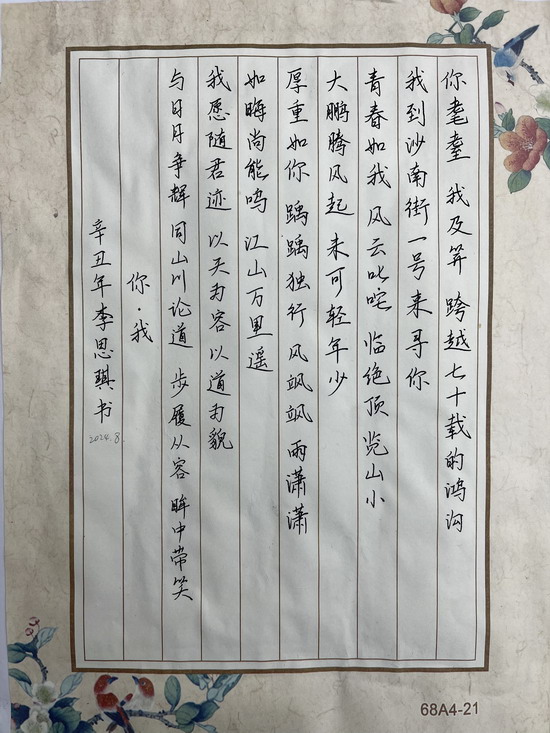 你耄耋 我及笄 跨越七十载的鸿沟
我到沙南街一号来寻你
青春如我 风云叱咤 临绝顶 览山小
大鹏腾风起 未可轻年少
厚重如你 踽踽独行 风飒飒 雨潇潇
如晦尚能鸣 江山万里遥
我愿随君迹 以天为容 以道为貌
与日月争辉 同山川论道 步履从容 眸中带笑
你·我
辛丑年李思琪书
2024.8.
68A4-21